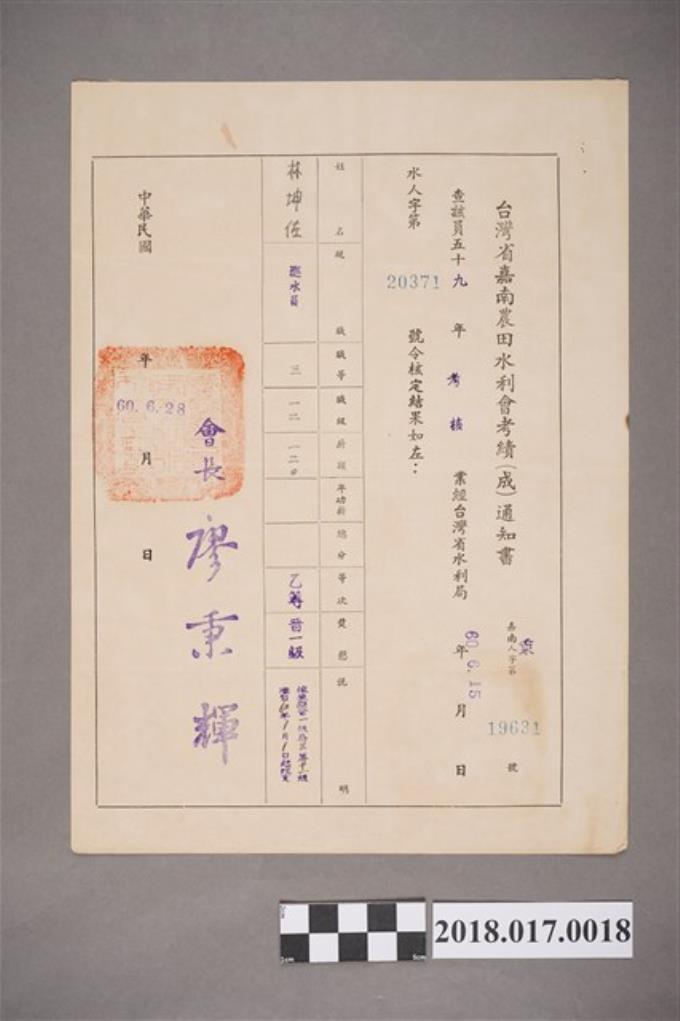 台灣省嘉南農田水利會考績(成)通知書
業
嘉南人字第 19631 號
查該員五十九年考核業經台灣省水利局 60.6.15 年 月 日
水人字第 20371 號令核定結果如左：
姓名 現職 職等 職級 薪額 年功薪 總分 等次 獎懲 說明
林坤佐 巡水員 三 一二 一二0 乙等 晉一級
會長 廖秉輝
中華民國 年 月 日
60.6.28
2018.017.0018